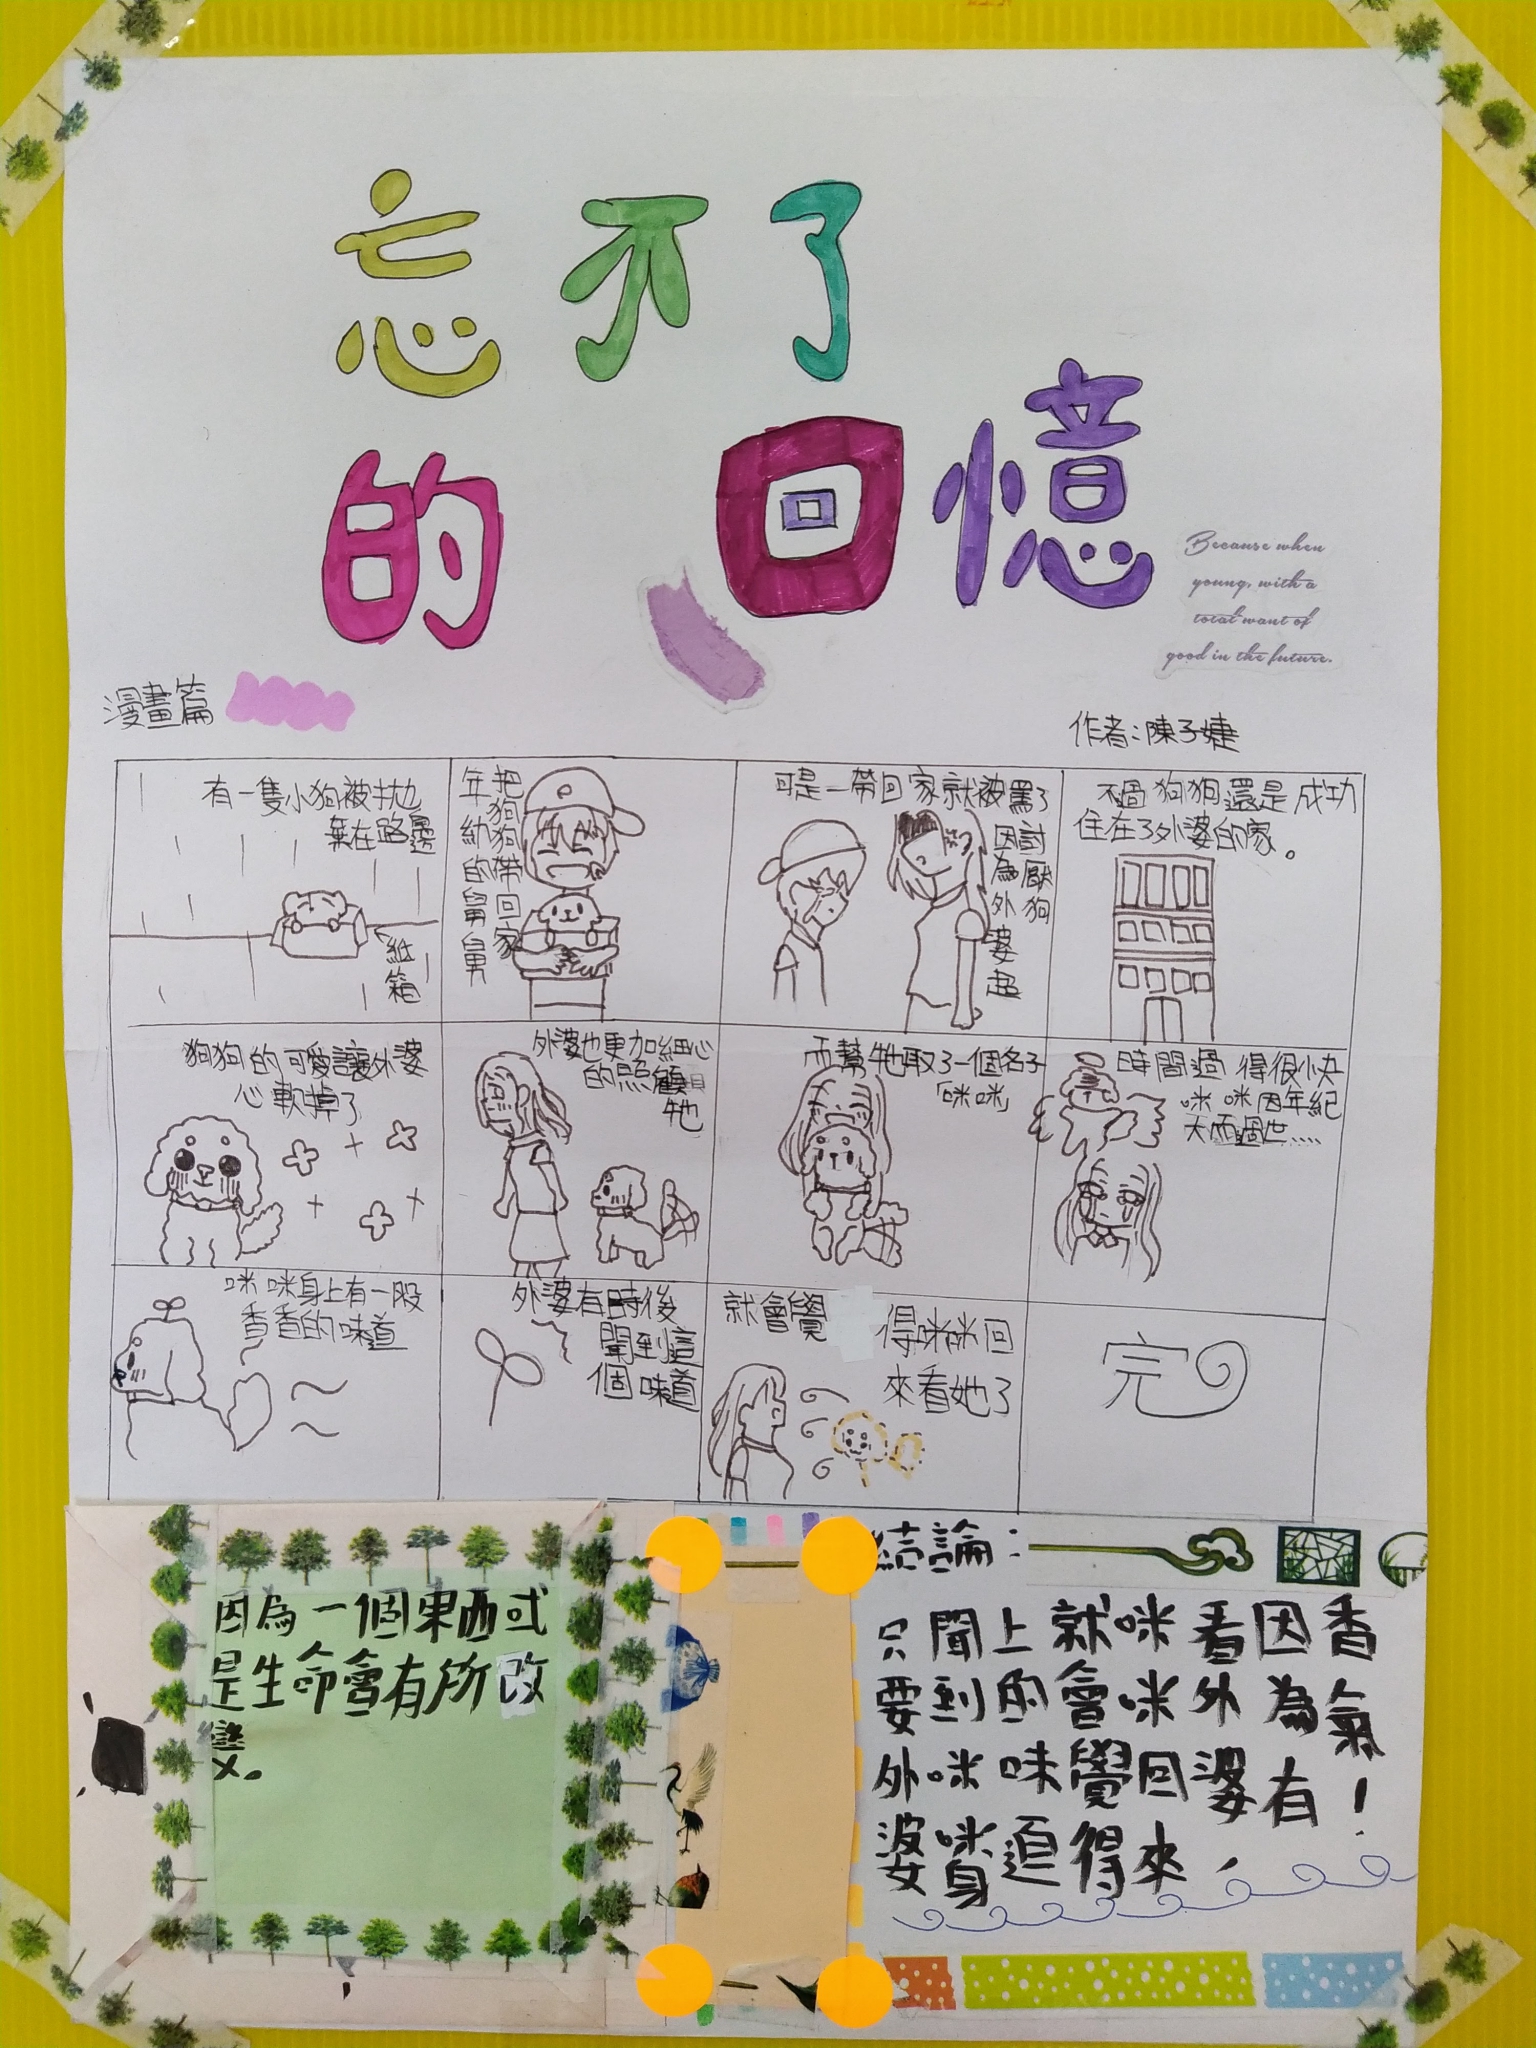 忘不了
的回憶
Because when
young, with a
total want of
good in the future.
漫畫篇
作者:陳子婕
有一隻小狗被拋
棄在路邊
紙箱
年幼的舅舅
把狗狗帶回家
可是一帶回家就被罵了
因為外婆超
討厭狗
不過狗狗還是成功
住在了外婆的家。
狗狗的可愛讓外婆
心軟掉了
外婆也更加細心
的照顧
牠
而幫牠取了一個名子
「咪咪」
時間過得很快
咪咪因年紀
大而過世.....
咪咪身上有一股
香香的味道
外婆有時後
聞到這
個味道
就會覺得咪咪回
來看她了
完
因為一個東西或
是生命會有所改
變。
結論:
只要外婆
聞到咪咪身
上的味道
就會覺得
咪咪回來，
看外婆
因為有
香氣！